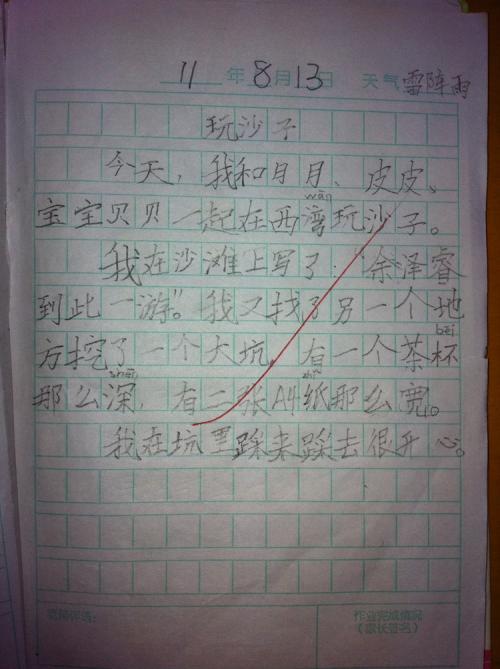 11年8月13日 天气 雷阵雨
玩沙子
今天，我和月月、皮皮、
wān
宝宝贝贝一起在西湾玩沙子。
我在沙滩上写了："余泽睿
到此一游"。我又找了另一个地
bēi
方挖了一个大坑，有一个茶杯
shēn zhǐ
那么深，有二张A4纸那么宽。
我在坑里踩来踩去很开心。
老师评语：
作业完成情况
（家长签名）